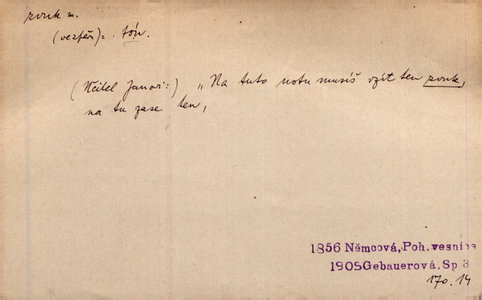 zvuk m.
(vezpěv) = tón.
(Učitel Janovi:) „Na tuto notu musíš vzít ten zvuk,
na tu zase ten,
1856 Němcová, Poh. vesnice
1905 Gebauerová, Sp 3
170.14